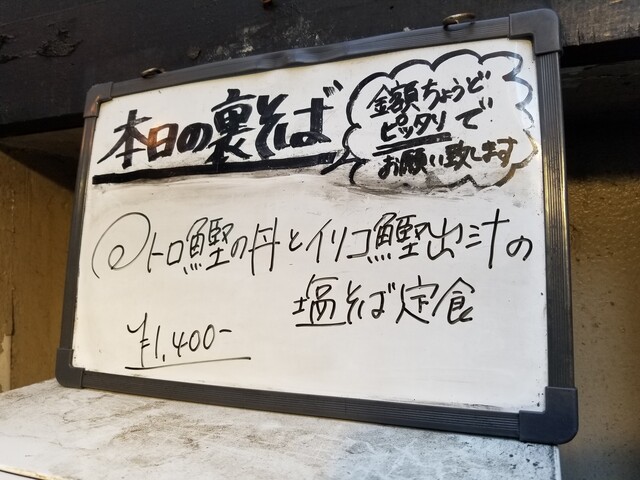 本日の裏そば
金額ちょうど
ピッタリで
お願い致します
トロ鰹の丼とイリコ鰹出汁の
塩そば定食
¥1,400-